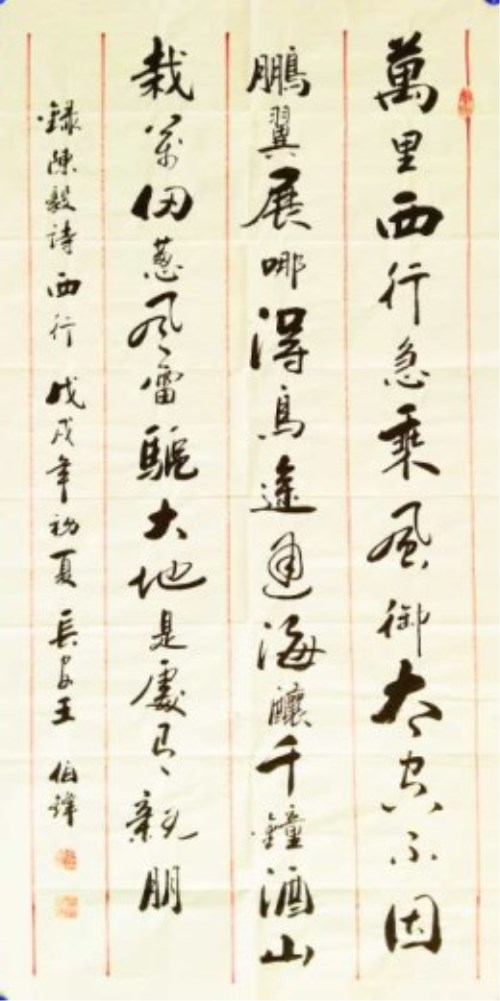 萬里西行急乘風御太空不因
鵬翼展哪得鳥途通海釀千鐘酒山
栽萬仞蔥風雷驅大地是處有親朋
錄陳毅詩西行 戊戌年初夏 長安王 伯